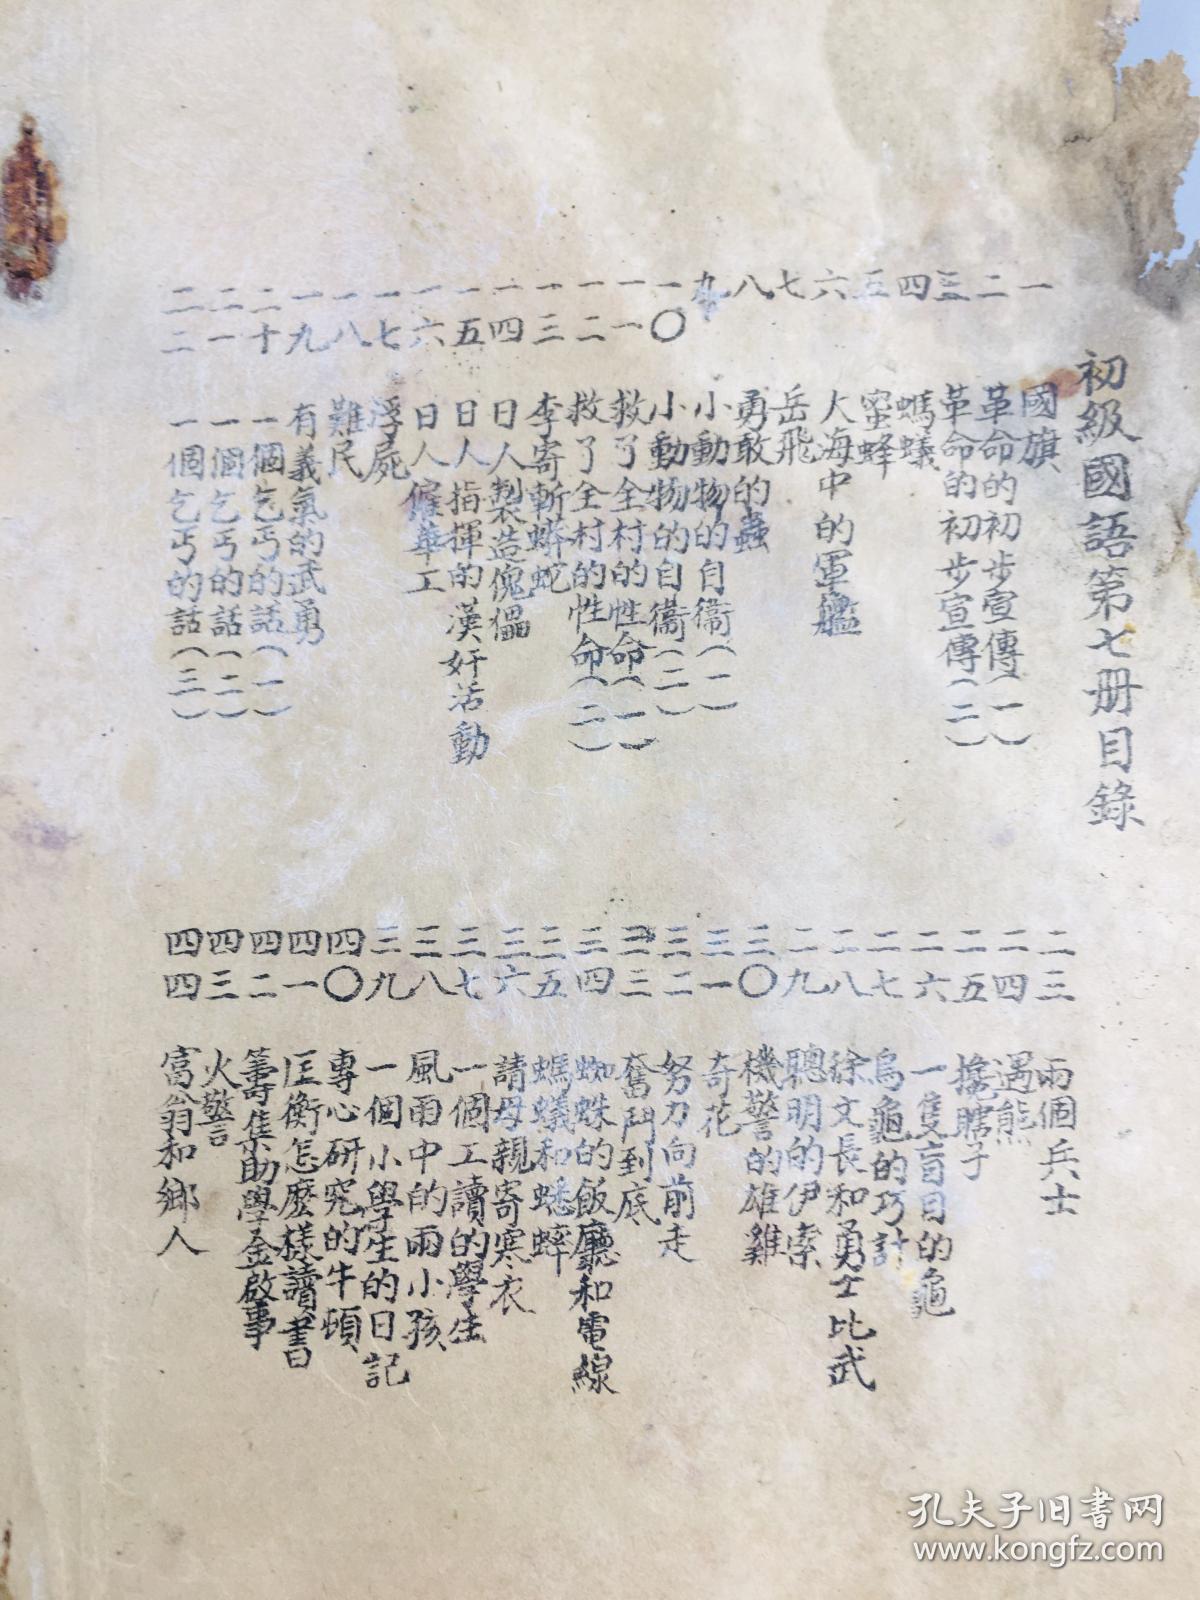 初級國語第七册目錄
一 國旗
二 革命的初步宣傳(一)
三 革命的初步宣傳(二)
四 螞蟻
五 蜜蜂
六 大海中的軍艦
七 岳飛
八 勇敢的蟲
九 小動物的自衞(一)
一〇 小動物的自衞(二)
一一 救了全村的性命(一)
一二 救了全村的性命(二)
一三 李寄斬蟒蛇
一四 日人製造傀儡
一五 日人指揮的漢奸活動
一六 日人僱華工
一七 浮屍
一八 難民
一九 有義氣的武勇
二十 一個乞丐的話(一)
二一 一個乞丐的話(二)
二二 一個乞丐的話(三)
二三 兩個兵士
二四 遇熊
二五 瞎子
二六 一隻盲目的龜
二七 烏龜的巧計
二八 徐文長和勇士比武
二九 聰明的伊索
三〇 機警的雄雞
三一 奇花
三二 努力向前走
三三 奮鬥到底
三四 蜘蛛的飯廳和電線
三五 螞蟻和蟋蟀
三六 請母親寄寒衣
三七 一個工讀的學生
三八 風雨中的兩小孩
三九 一個小學生的日記
四〇 專心研究的牛頓
四一 匡衡怎麼樣讀書
四二 籌集助學金啟事
四三 火警
四四 富翁和鄉人
孔夫子旧书网
www.kongfz.com